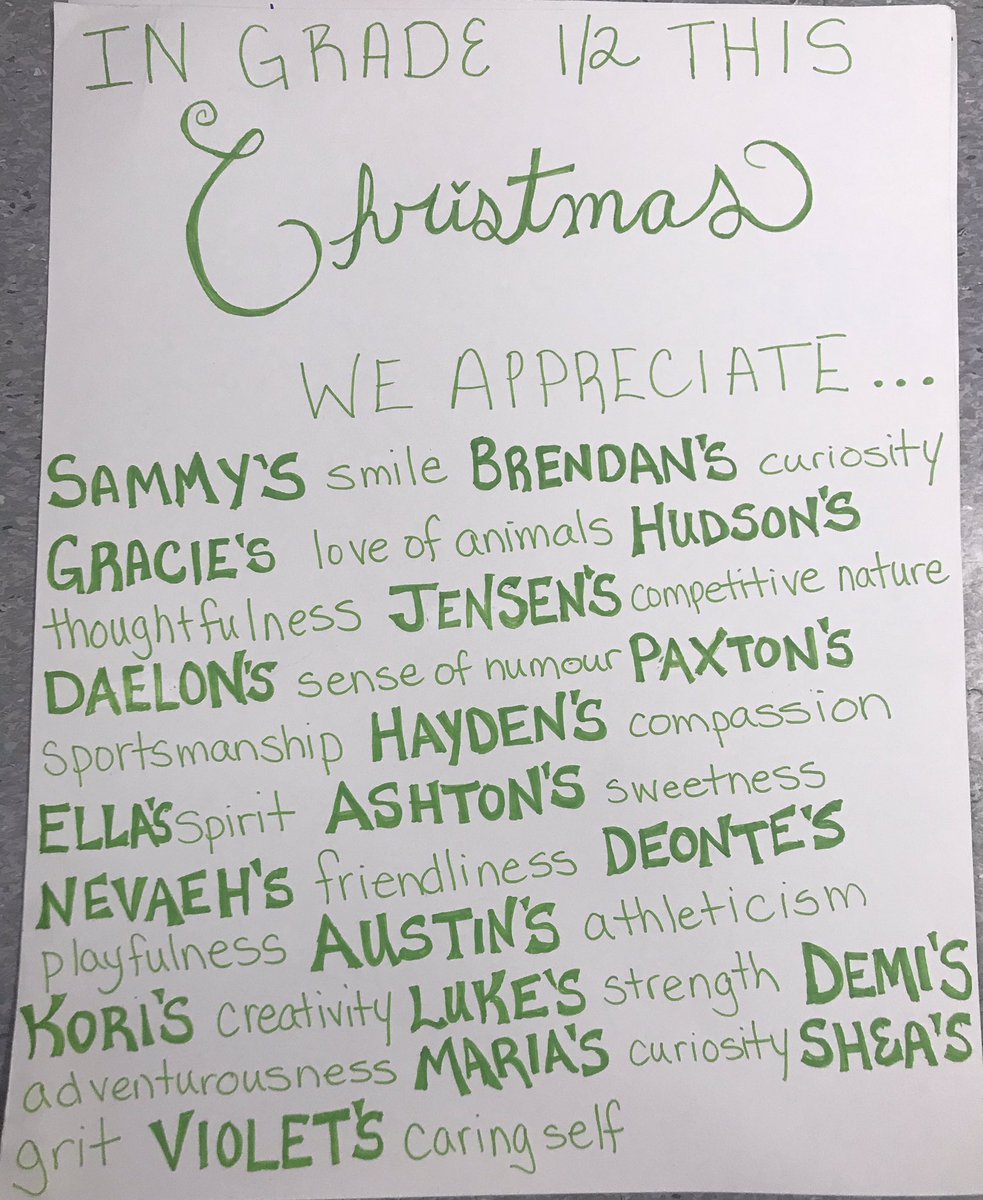 IN GRADE 1/2 THIS
Christmas
WE APPRECIATE...
SAMMY'S smile BRENDAN'S curiosity
GRACIE'S love of animals HUDSON'S
thoughtfulness JENSEN'S competitive nature
DAELON'S sense of humour PAXTON'S
sportsmanship HAYDEN'S compassion
ELLA'S spirit ASHTON'S sweetness
NEVAEH'S friendliness DEONTE'S
playfulness AUSTIN'S athleticism
KORI'S creativity LUKE'S strength DEMI'S
adventurousness MARIA'S curiosity SHEA'S
grit VIOLET'S caring self